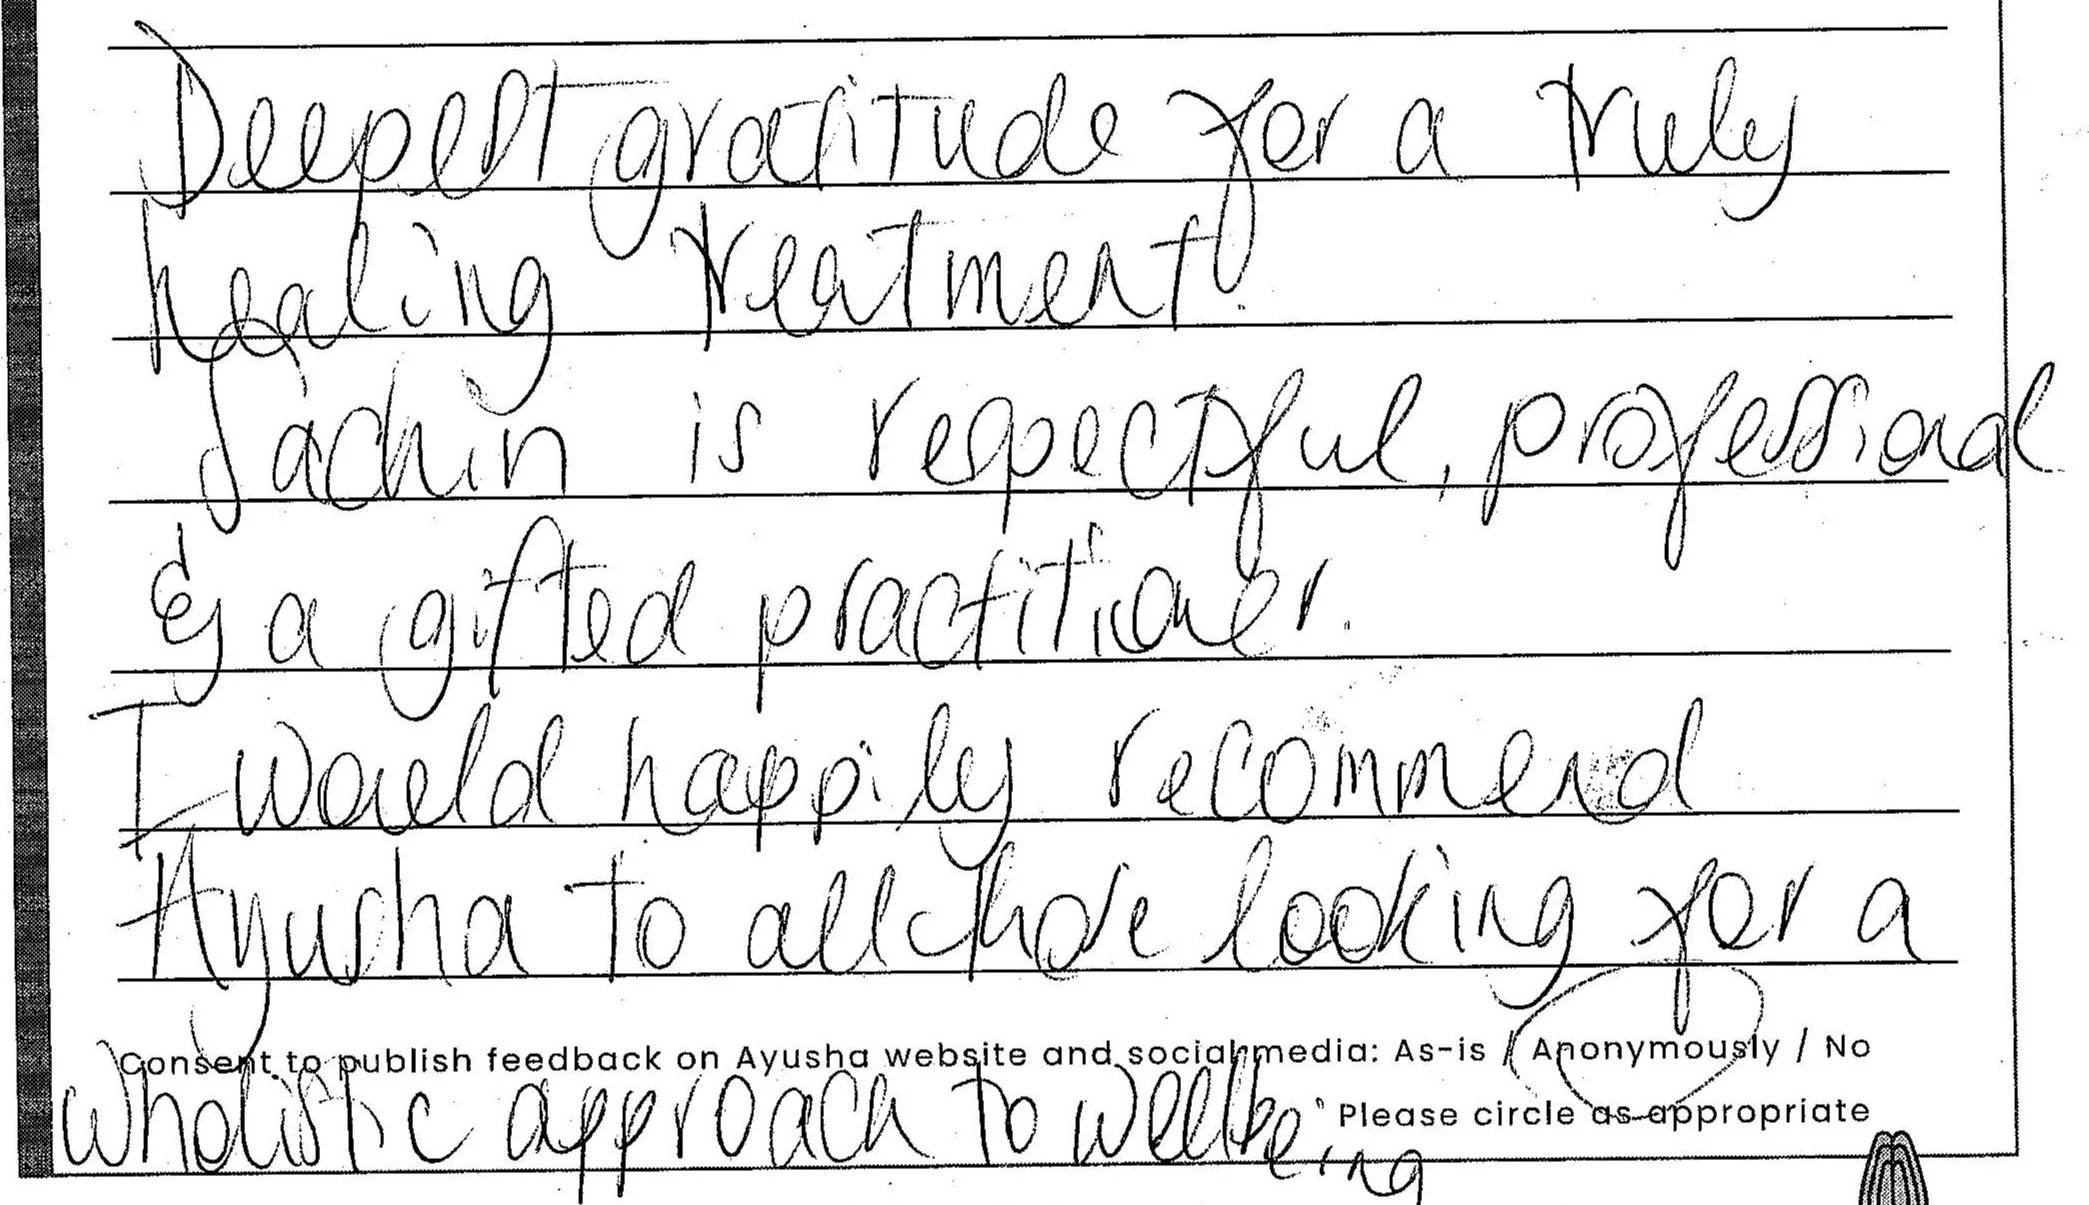 Deepest gratitude for a truly
healing treatment.
Sachin is respectful, professional
& a gifted practitioner.
I would happily recommend
Ayusha to all those looking for a
Consent to publish feedback on Ayusha website and social media: As-is / Anonymously / No
wholistic approach to wellbeing
Please circle as appropriate